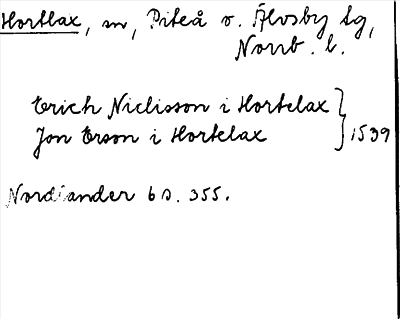 Hortlax, sn, Piteå o. Älvsby tg,
Norrb. l.
Erich Niclisson i Hortelax
Jon Erson i Hortelax } 1539
Nordlander 6 s. 355.